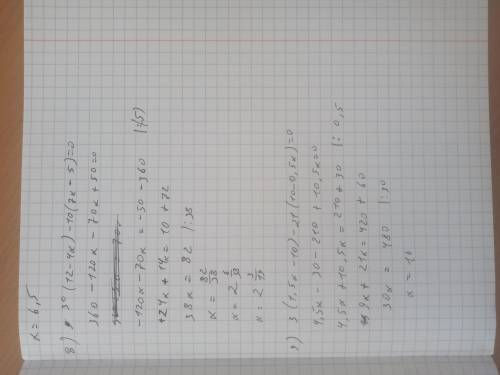 x = 6,5
8) 30(12-4x)-10(7x-5)=0
360-120x-70x+50=0
-120x-70x=-50-360 |:(5)
+24x+14x=10+72
38x=82 |:38
x=82/38
x=2 6/38
x=2 3/19
9) 3(1,5x-10)-21(10-0,5x)=0
4,5x-30-210+10,5x=0
4,5x+10,5x=210+30 |:0,5
9x+21x=420+60
30x=480 |:30
x=16